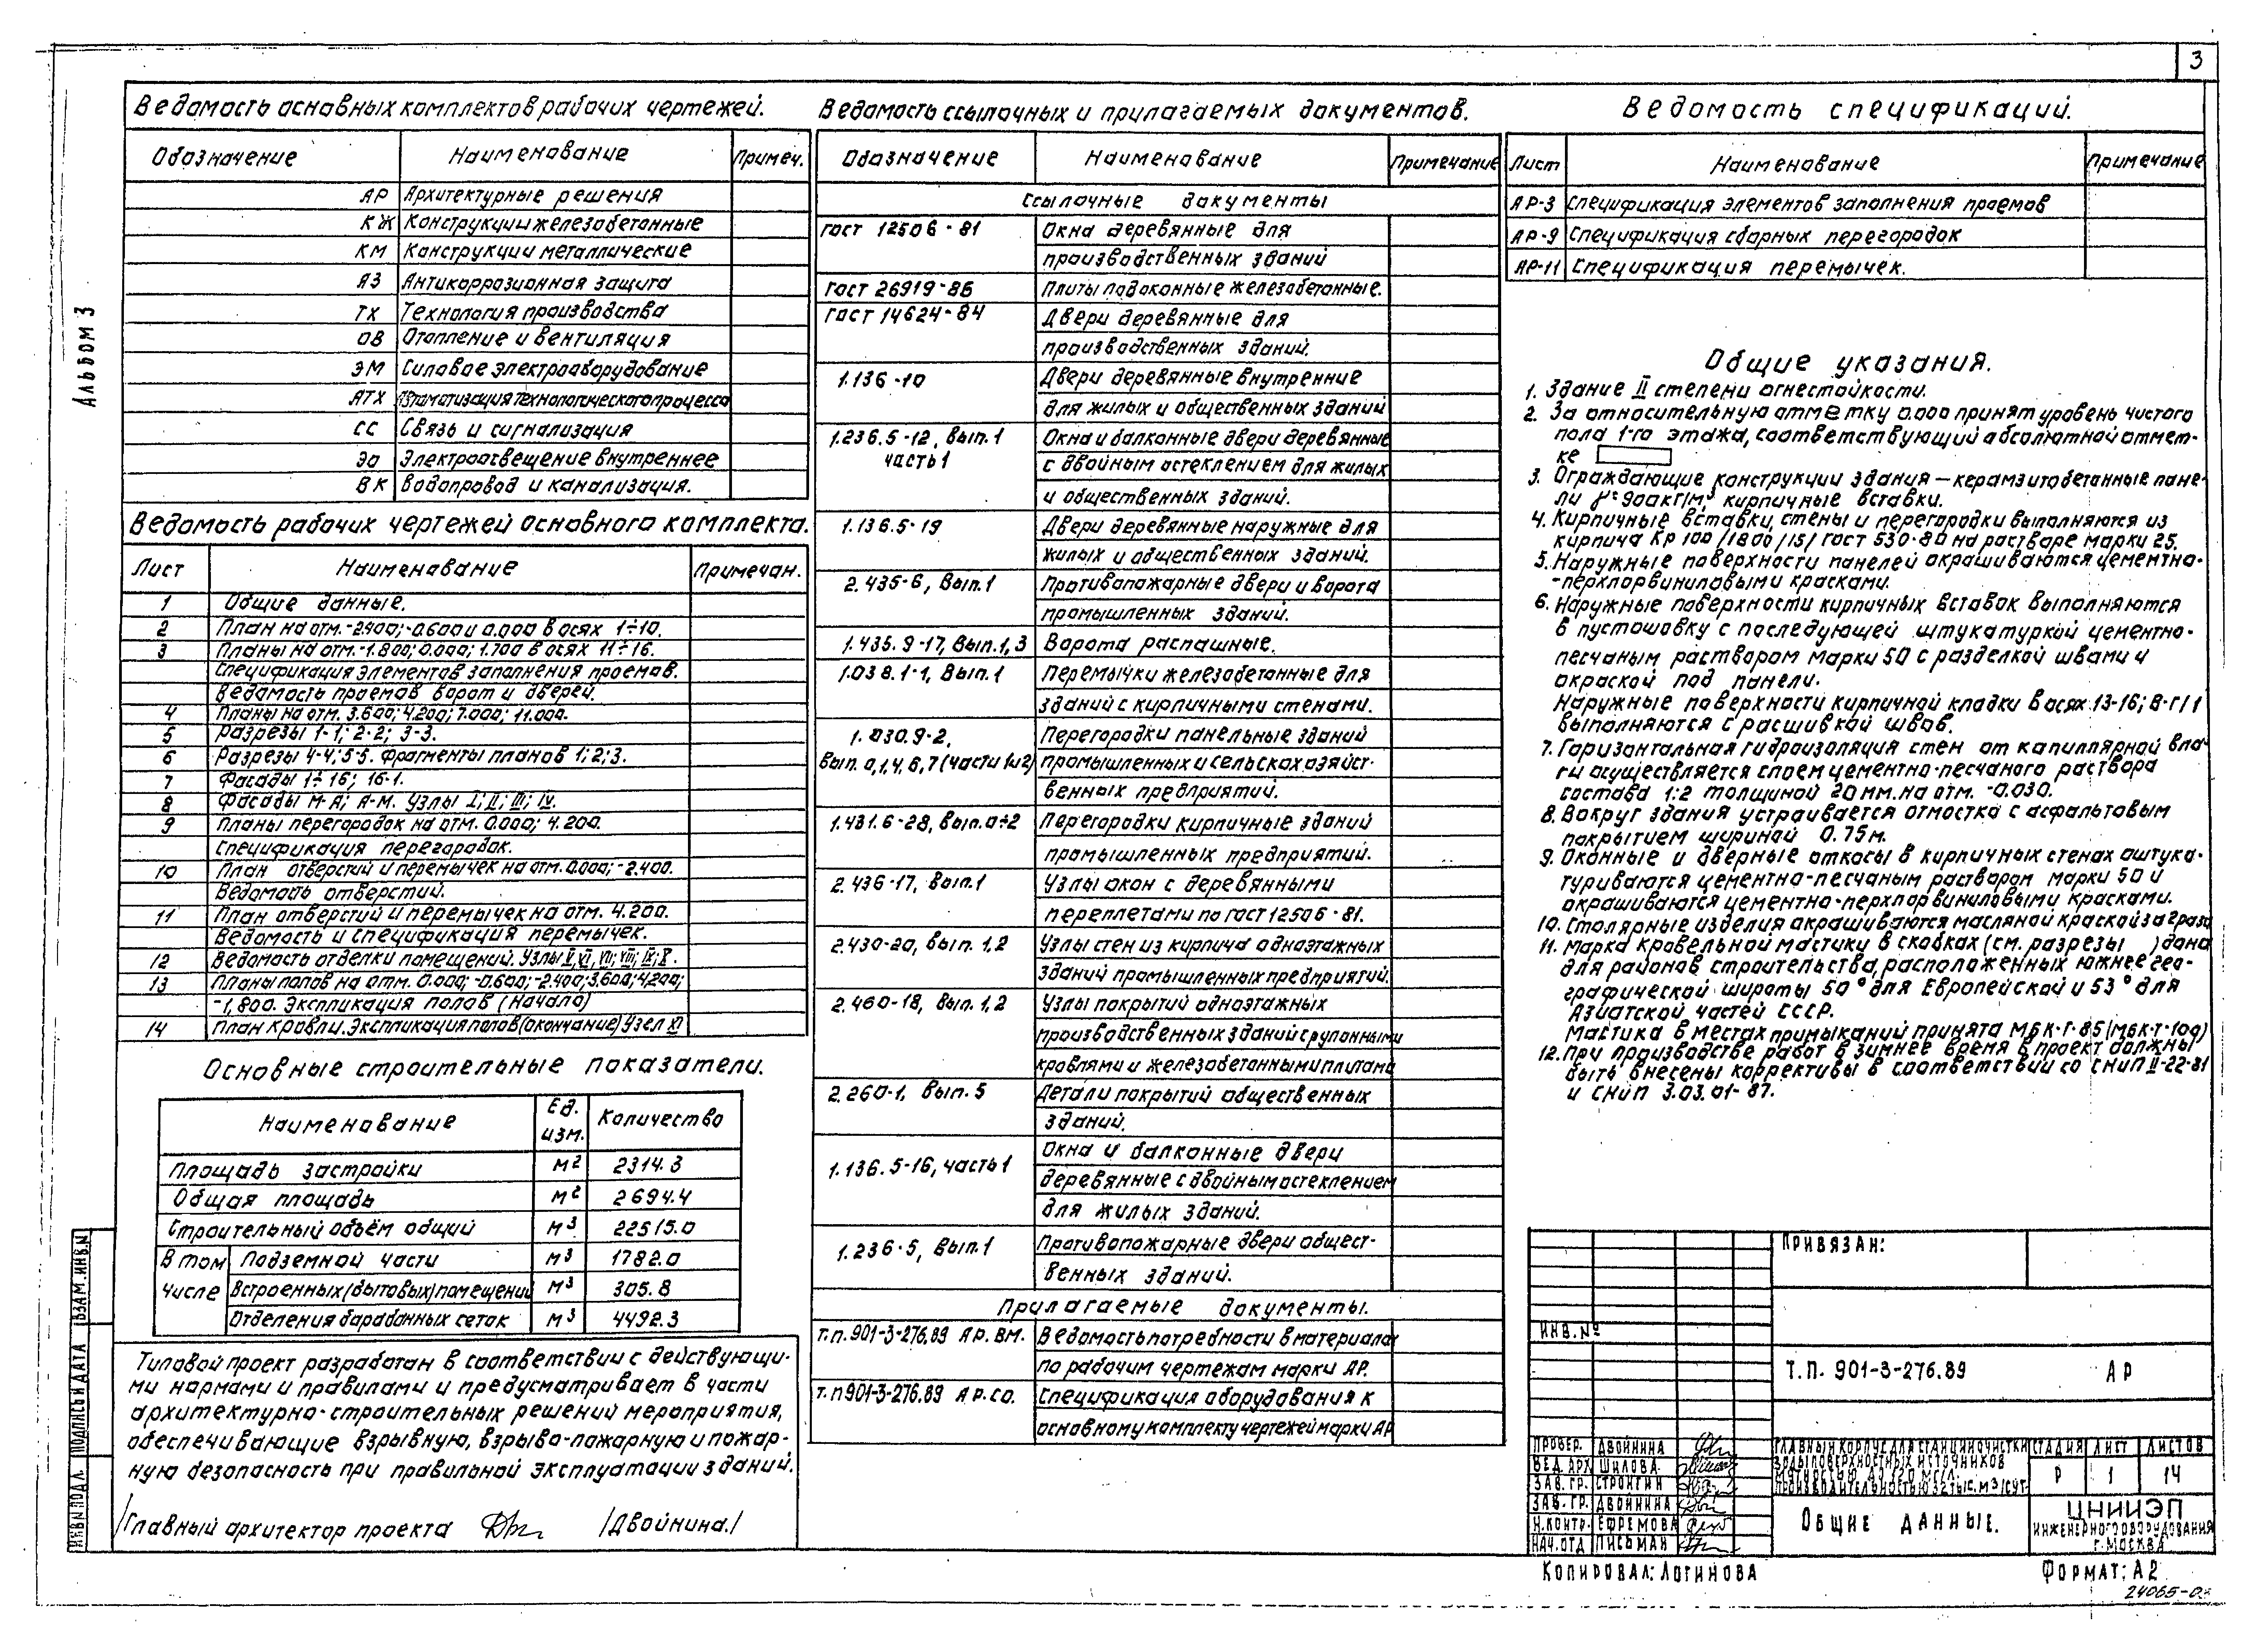 3
Альбом 3
Ведомость основных комплектов рабочих чертежей.
Обозначение Наименование Примеч.
АР Архитектурные решения
КЖ Конструкции железобетонные
КМ Конструкции металлические
АЗ Антикоррозионная защита
ТХ Технология производства
ОВ Отопление и вентиляция
ЭМ Силовое электрооборудование
АТХ Автоматизация технологического процесса
СС Связь и сигнализация
ЭО Электроосвещение внутреннее
ВК Водопровод и канализация.
Ведомость рабочих чертежей основного комплекта.
Лист Наименование Примечан.
1 Общие данные.
2 План на отм. -2.400; -0.600 и 0.000 в осях 1÷10.
3 Планы на отм. -1.800; 0.000; 1.700 в осях 11÷16.
Спецификация элементов заполнения проемов.
Ведомость проемов ворот и дверей.
4 Планы на отм. 3.600; 4.200; 7.000; 11.000.
5 Разрезы 1-1; 2-2; 3-3.
6 Разрезы 4-4; 5-5. Фрагменты планов 1; 2; 3.
7 Фасады 1÷16; 16-1.
8 Фасады М-А; А-М. Узлы I; II; III; IV.
9 Планы перегородок на отм. 0.000; 4.200.
Спецификация перегородок.
10 План отверстий и перемычек на отм. 0.000; -2.400.
Ведомость отверстий.
11 План отверстий и перемычек на отм. 4.200.
Ведомость и спецификация перемычек.
12 Ведомость отделки помещений. Узлы V, VI, VII; VIII; IX; X.
13 Планы полов на отм. 0.000; -0.600; -2.400; 3.600; 4.200;
-1,800. Экспликация полов (начало)
14 План кровли. Экспликация полов (окончание) Узел XI
Основные строительные показатели.
Наименование Ед. изм. Количество
Площадь застройки м2 2314.3
Общая площадь м2 2694.4
Строительный объём общий м3 22515.0
В том Подземной части м3 1782.0
числе Встроенных (бытовых) помещений м3 305.8
Отделения барабанных сеток м3 4492.3
Типовой проект разработан в соответствии с действующи-
ми нормами и правилами и предусматривает в части
архитектурно-строительных решений мероприятия,
обеспечивающие взрывную, взрыво-пожарную и пожар-
ную безопасность при правильной эксплуатации зданий.
Главный архитектор проекта /Двойнина./
Ведомость ссылочных и прилагаемых документов.
Обозначение Наименование Примечание
Ссылочные документы
ГОСТ 12506-81 Окна деревянные для
производственных зданий
ГОСТ 26919-86 Плиты подоконные железобетонные.
ГОСТ 14624-84 Двери деревянные для
производственных зданий.
1.136-10 Двери деревянные внутренние
для жилых и общественных зданий
1.236.5-12, вып.1 Окна и балконные двери деревянные
часть 1 с двойным остеклением для жилых
и общественных зданий.
1.136.5-19 Двери деревянные наружные для
жилых и общественных зданий.
2.435-6, вып.1 Противопожарные двери и ворота
промышленных зданий.
1.435.9-17, вып.1,3 Ворота распашные.
1.038.1-1, вып.1 Перемычки железобетонные для
зданий с кирпичными стенами.
1.030.9-2, Перегородки панельные зданий
вып. 0,1,4,6,7 (части 1и2) промышленных и сельскохозяйст-
венных предприятий.
1.431.6-28, вып.0÷2 Перегородки кирпичные зданий
промышленных предприятий.
2.436-17, вып.1 Узлы окон с деревянными
переплетами по ГОСТ 12506-81.
2.430-20, вып. 1,2 Узлы стен из кирпича одноэтажных
зданий промышленных предприятий.
2.460-18, вып. 1,2 Узлы покрытий одноэтажных
производственных зданий с рулонными
кровлями и железобетонными плитами
2.260-1, вып. 5 Детали покрытий общественных
зданий.
1.136.5-16, часть 1 Окна и балконные двери
деревянные с двойным остеклением
для жилых зданий.
1.236-5, вып.1 Противопожарные двери общест-
венных зданий.
Прилагаемые документы.
Т.п. 901-3-276.89 АР. ВМ. Ведомость потребности в материалах
по рабочим чертежам марки АР.
Т.п 901-3-276.89 АР.СО. Спецификация оборудования к
основному комплекту чертежей марки АР
Ведомость спецификаций.
Лист Наименование Примечание
АР-3 Спецификация элементов заполнения проемов
АР-9 Спецификация сборных перегородок
АР-11 Спецификация перемычек.
Общие указания.
1. Здание II степени огнестойкости.
2. За относительную отметку 0.000 принят уровень чистого
пола 1-го этажа, соответствующий абсолютной отмет-
ке
3. Ограждающие конструкции здания – керамзитобетонные пане-
ли γ=900кг/м3, кирпичные вставки.
4. Кирпичные вставки, стены и перегородки выполняются из
кирпича Кр 100/1800/15/ ГОСТ 530-80 на растворе марки 25.
5. Наружные поверхности панелей окрашиваются цементно-
-перхлорвиниловыми красками.
6. Наружные поверхности кирпичных вставок выполняются
в пустошовку с последующей штукатуркой цементно-
песчаным раствором марки 50 с разделкой швами и
окраской под панели.
Наружные поверхности кирпичной кладки в осях 13-16; В-Г/1
выполняются с расшивкой швов.
7. Горизонтальная гидроизоляция стен от капиллярной вла-
ги осуществляется слоем цементно-песчаного раствора
состава 1:2 толщиной 20 мм. на отм. -0.030.
8. Вокруг здания устраивается отмостка с асфальтовым
покрытием шириной 0.75м.
9. Оконные и дверные откосы в кирпичных стенах оштука-
туриваются цементно-песчаным раствором марки 50 и
окрашиваются цементно-перхлорвиниловыми красками.
10. Столярные изделия окрашиваются масляной краской за 2 раза
11. Марка кровельной мастики в скобках (см. разрезы ) дана
для районов строительства, расположенных южнее гео-
графической широты 50° для Европейской и 53° для
Азиатской частей СССР.
Мастика в местах примыканий принята МБК-Г-85 (МБК-Г-100)
12. При производстве работ в зимнее время в проект должны
быть внесены коррективы в соответствии со СНиП II-22-81
и СНиП 3.03.01-87.
Привязан:
Инв.№
Т.п. 901-3-276.89 АР
Провер. Двойнина
Вед. арх Шилова
Зав. гр. Стронгин
Зав. гр. Двойнина
Н.контр. Ефремова
Нач.отд Письман
Главный корпус для станции очистки
воды поверхностных источников
мутностью до 120 мг/л.
производительностью 32 тыс. м3/сут.
Стадия Лист Листов
Р 1 14
Общие данные.
ЦНИИЭП
инженерного оборудования
г. Москва
Копировал: Логинова
Формат: А2
24065-03
Взам. инв.№
Подпись и дата
Инв.№ подл.